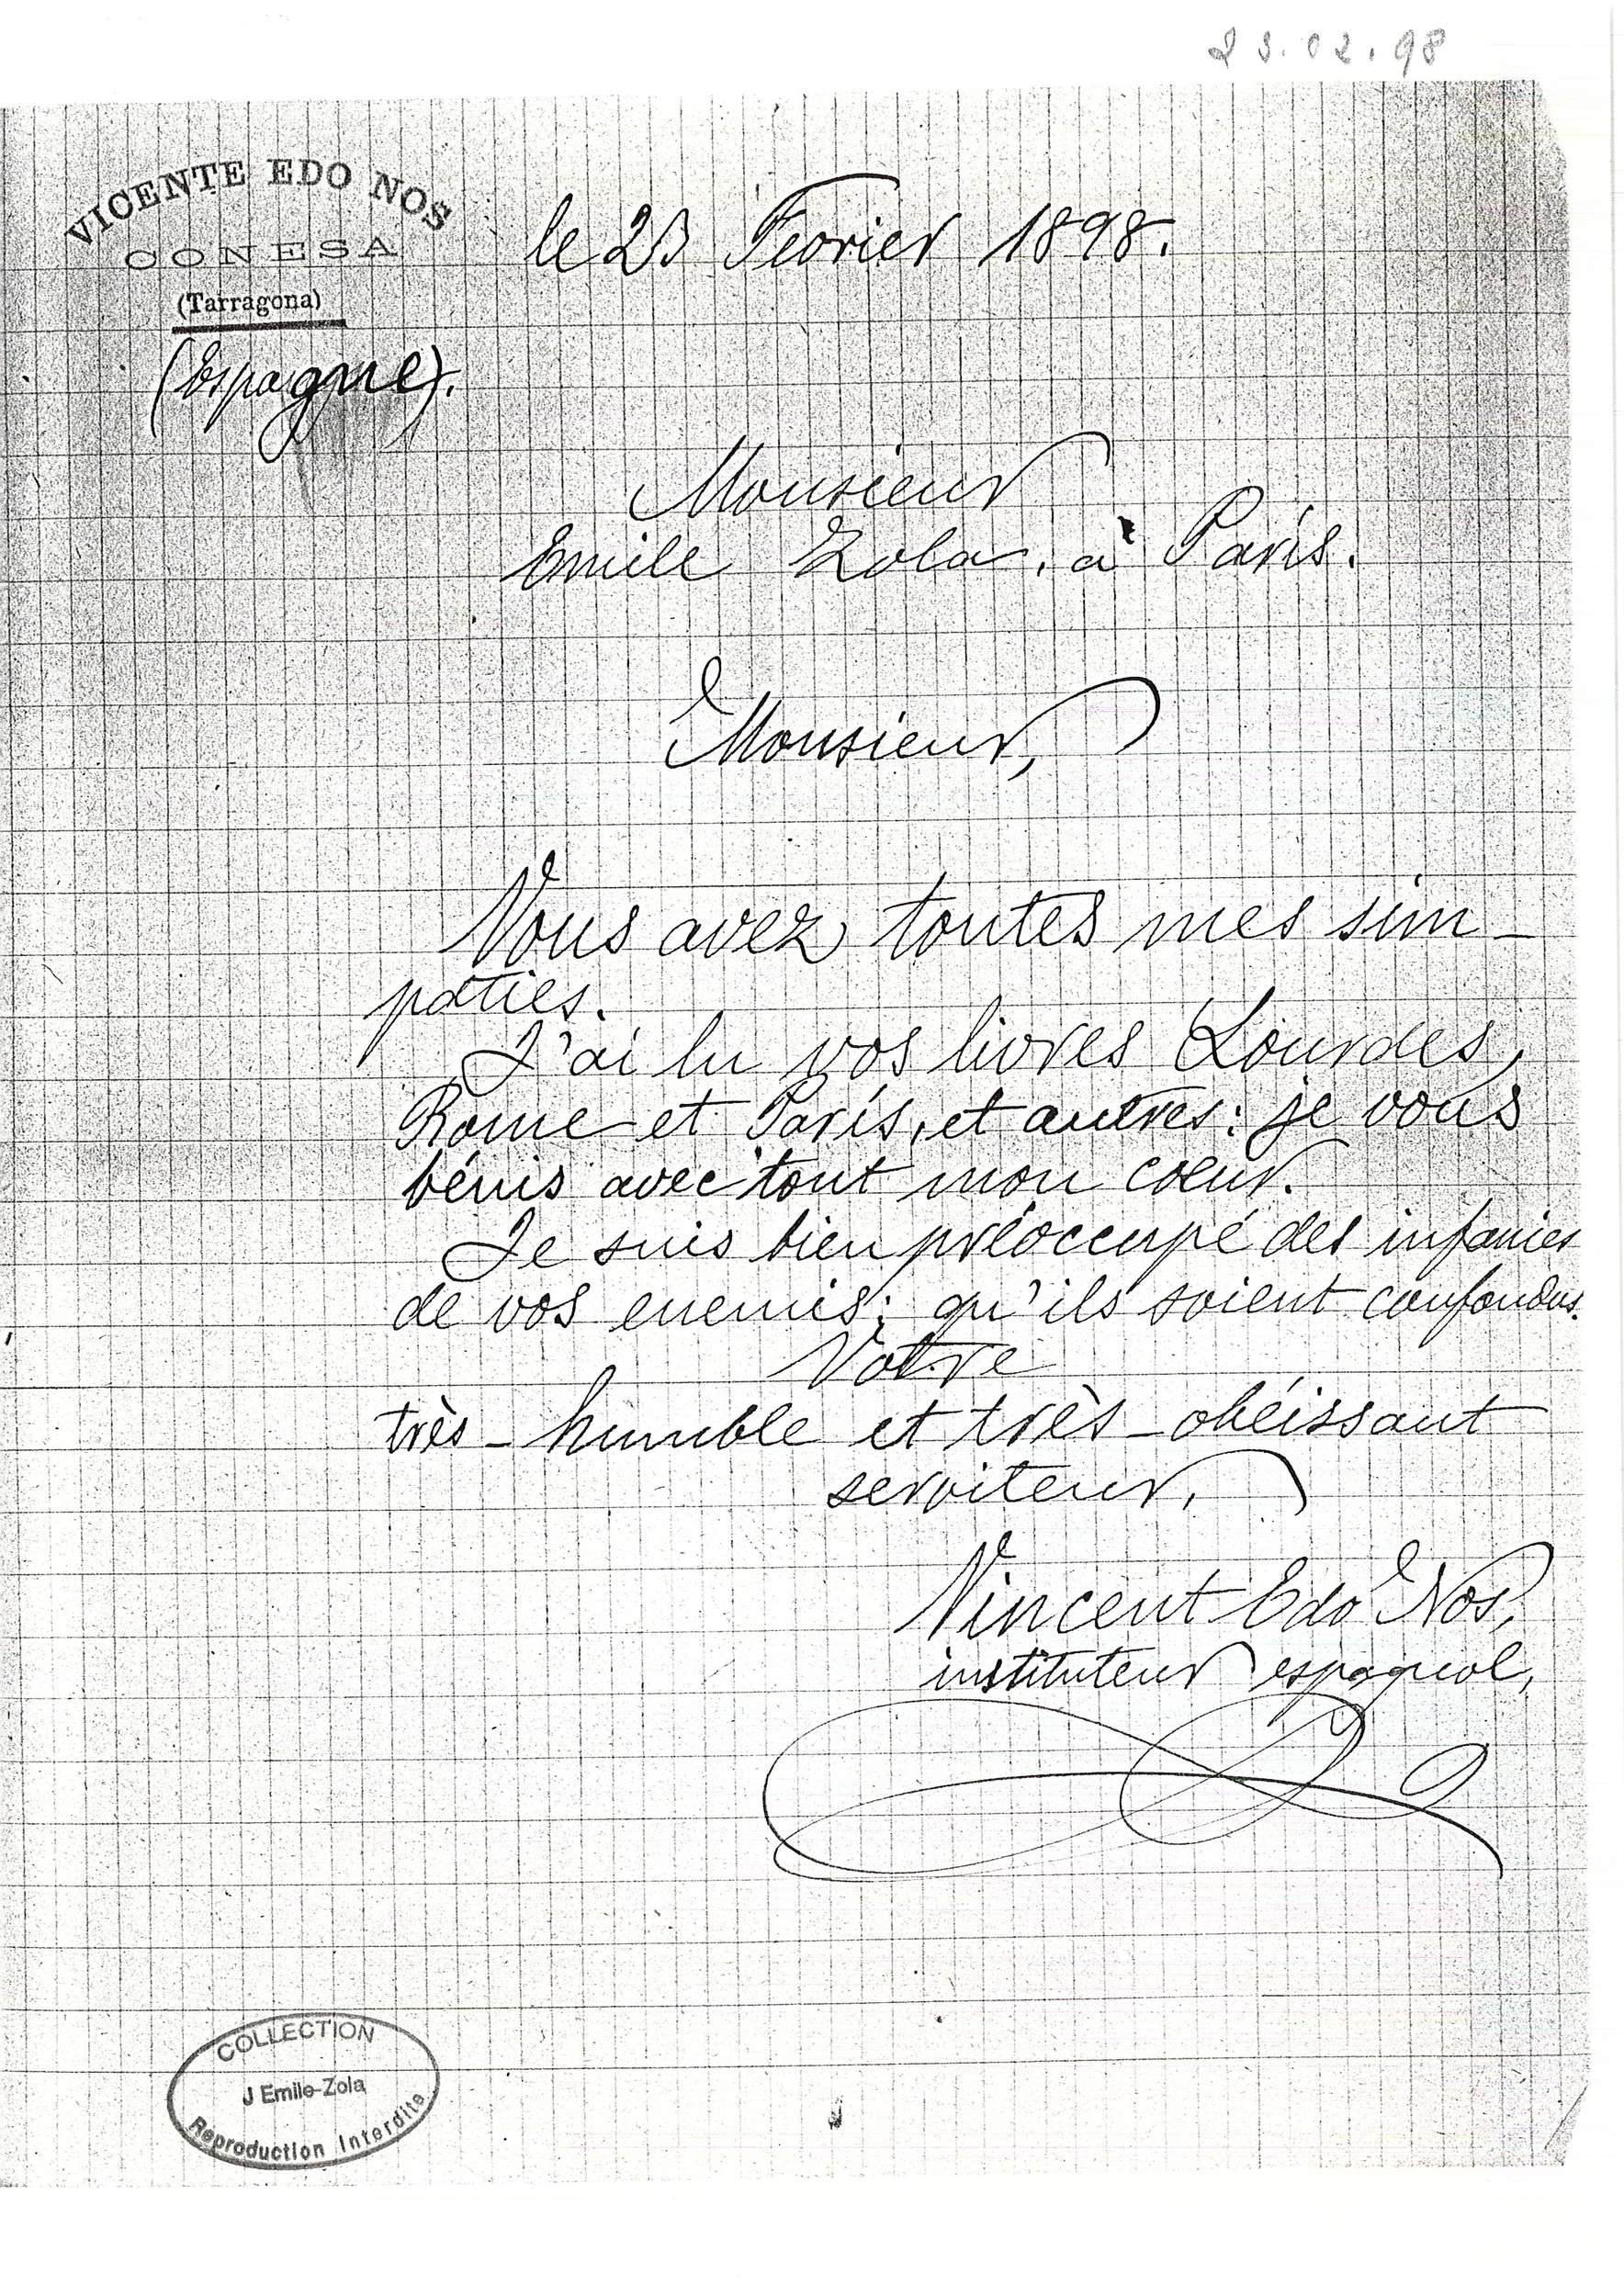 23.02.98
VICENTE EDO NOS
CONESA
(Tarragona)
(Espagne).
le 23 Fevrier 1898.
Monsieur
Emile Zola, à Paris.
Monsieur,
Vous avez toutes mes sim-
paties.
J'ai lu vos livres Lourdes,
Rome et Paris, et autres: je vous
bénis avec tout mon coeur.
Je suis bien préoccupé des infamies
de vos enemis; qu'ils soient confondus.
Votre
très-humble et très-obéissant
serviteur,
Vincent Edo Nos,
instituteur espagnol,
COLLECTION
J Emile-Zola
Reproduction Interdite